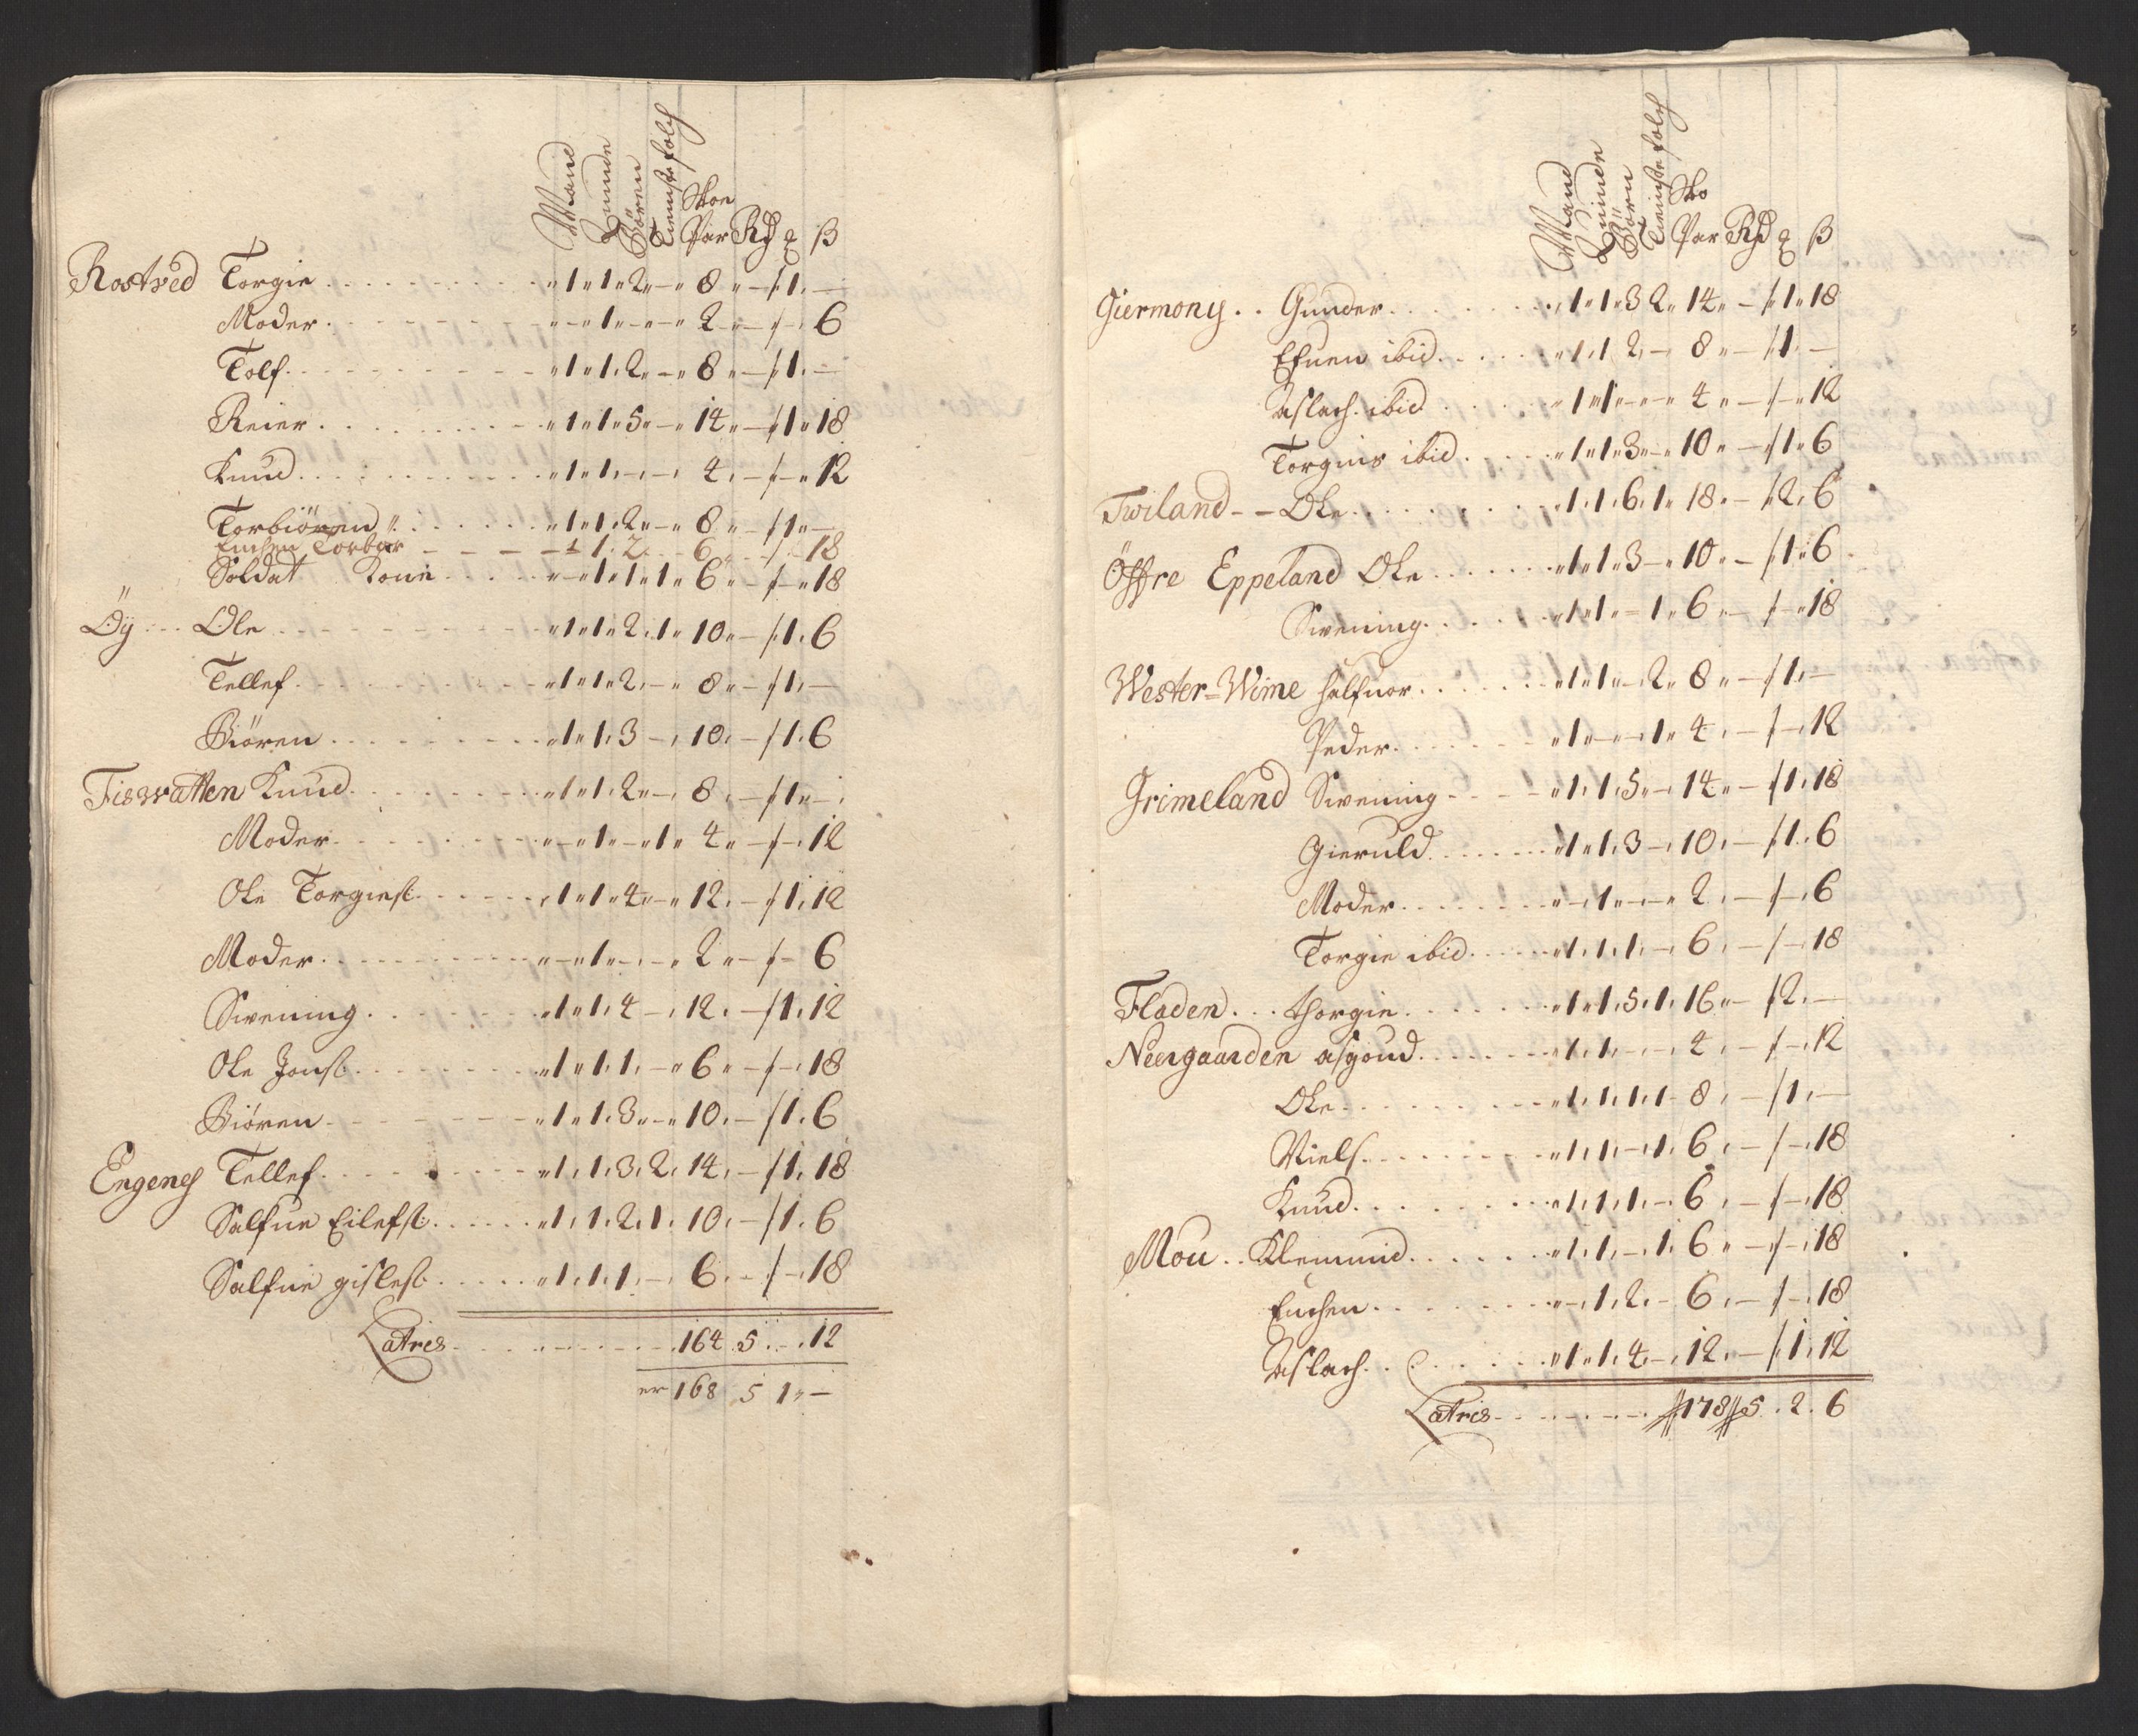 Mand Quinde Börn Tieniste folch Skoe Par Rd q ß
Rostved Torgie 1 1 2 – 8 – 1 –
Moder – 1 – – 2 – – 6
Tolf 1 1 2 – 8 – 1 –
Reier 1 1 5 – 14 – 1 18
Knud 1 1 – – 4 – – 12
Torbiören 1 1 2 – 8 – 1 –
Enchen Torbor – 1 2 6 – 18
Soldat Kone – 1 1 1 6 – – 18
Öÿ Ole 1 1 2 1 10 – 1 6
Tellef 1 1 2 – 8 – 1 –
Biören 1 1 3 – 10 – 1 6
Fiswatten Knud 1 1 2 – 8 – 1 –
Moder – 1 – 1 4 – – 12
Ole Torgiesl: 1 1 4 – 12 – 1 12
Moder – 1 – – 2 – – 6
Swening 1 1 4 – 12 – 1 12
Ole Jonsl: 1 1 1 – 6 – – 18
Biören 1 1 3 – 10 – 1 6
Engenes Tellef 1 1 3 2 14 – 1 18
Salfue Eilefsl: 1 1 2 1 10 – 1 6
Salfue gislesl: 1 1 1 – 6 – – 18
Latres 164 5 – 12
er 168 5 1 –
Mand Quinde Börn Tieniste folch Sko Par Rd q ß
Giermony Gunder 1 1 3 2 14 – 1 18
Efuen ibid 1 1 2 – 8 – 1 –
Aslach ibid 1 1 – – 4 – – 12
Torgius ibid 1 1 3 – 10 – 1 6
Twiland Ole 1 1 6 1 18 – 2 6
Öffre Eppeland Ole 1 1 3 – 10 – 1 6
Swening 1 1 – 1 6 – – 18
Wester=Wime Halfuor 1 1 – 2 8 – 1 –
Peder 1 – – 1 4 – – 12
Grimeland Swening 1 1 5 – 14 – 1 18
Gieruld 1 1 3 – 10 – 1 6
Moder – 1 – – 2 – – 6
Torgie ibid 1 1 1 – 6 – – 18
Fladen thorgie 1 1 5 1 16 – 2 –
Neergaarden asgoud 1 1 – – 4 – – 12
Ole 1 1 1 1 8 – 1 –
Niels 1 1 – 1 6 – – 18
Knud 1 1 1 – 6 – – 18
Mou Klemmid 1 1 – 1 6 – – 18
Enchen – 1 2 – 6 – – 18
Aslach 1 1 4 – 12 – 1 12
Latres 178 5 2 6